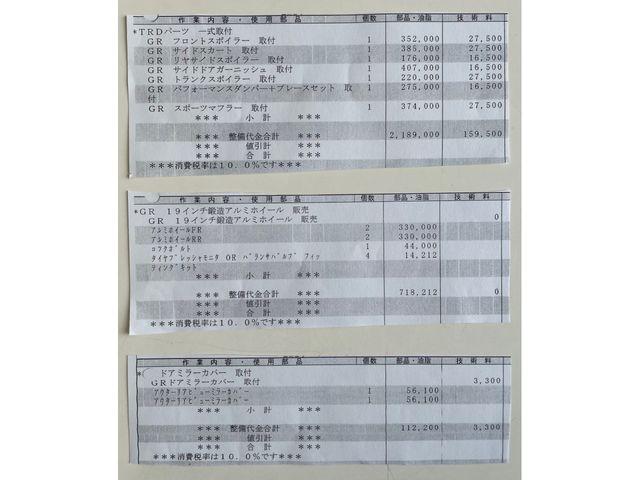 作業内容・使用部品 個数 部品・油脂 技術料
*TRDパーツ 一式取付
GR フロントスポイラー 取付 1 352,000 27,500
GR サイドスカート 取付 1 385,000 27,500
GR リヤサイドスポイラー 取付 1 176,000 16,500
GR サイドドアガーニッシュ 取付 1 407,000 16,500
GR トランクスポイラー 取付 1 220,000 27,500
GR パフォーマンスダンパー+ブレースセット 取 1 275,000 16,500
付
GR スポーツマフラー 取付 1 374,000 27,500
*** 小 計 ***
*** 整備代金合計 *** 2,189,000 159,500
*** 値引計 ***
*** 合 計 ***
***消費税率は10.0%です***
作業内容・使用部品 個数 部品・油脂 技術料
*GR 19インチ鍛造アルミホイール 販売
GR 19インチ鍛造アルミホイール 販売 0
アルミホイールFR 2 330,000
アルミホイールRR 2 330,000
ロックボルト 1 44,000
タイヤプレッシャモニタ OR バランサバルブ フィッ 4 14,212
ティングキット
*** 小 計 ***
*** 整備代金合計 *** 718,212 0
*** 値引計 ***
*** 合 計 ***
***消費税率は10.0%です***
作業内容・使用部品 個数 部品・油脂 技術料
*( ドアミラーカバー 取付
GRドアミラーカバー 取付 3,300
アウターリアビューミラーカバー 1 56,100
アウターリアビューミラーカバー 1 56,100
*** 小 計 ***
*** 整備代金合計 *** 112,200 3,300
*** 値引計 ***
*** 合 計 ***
***消費税率は10.0%です***